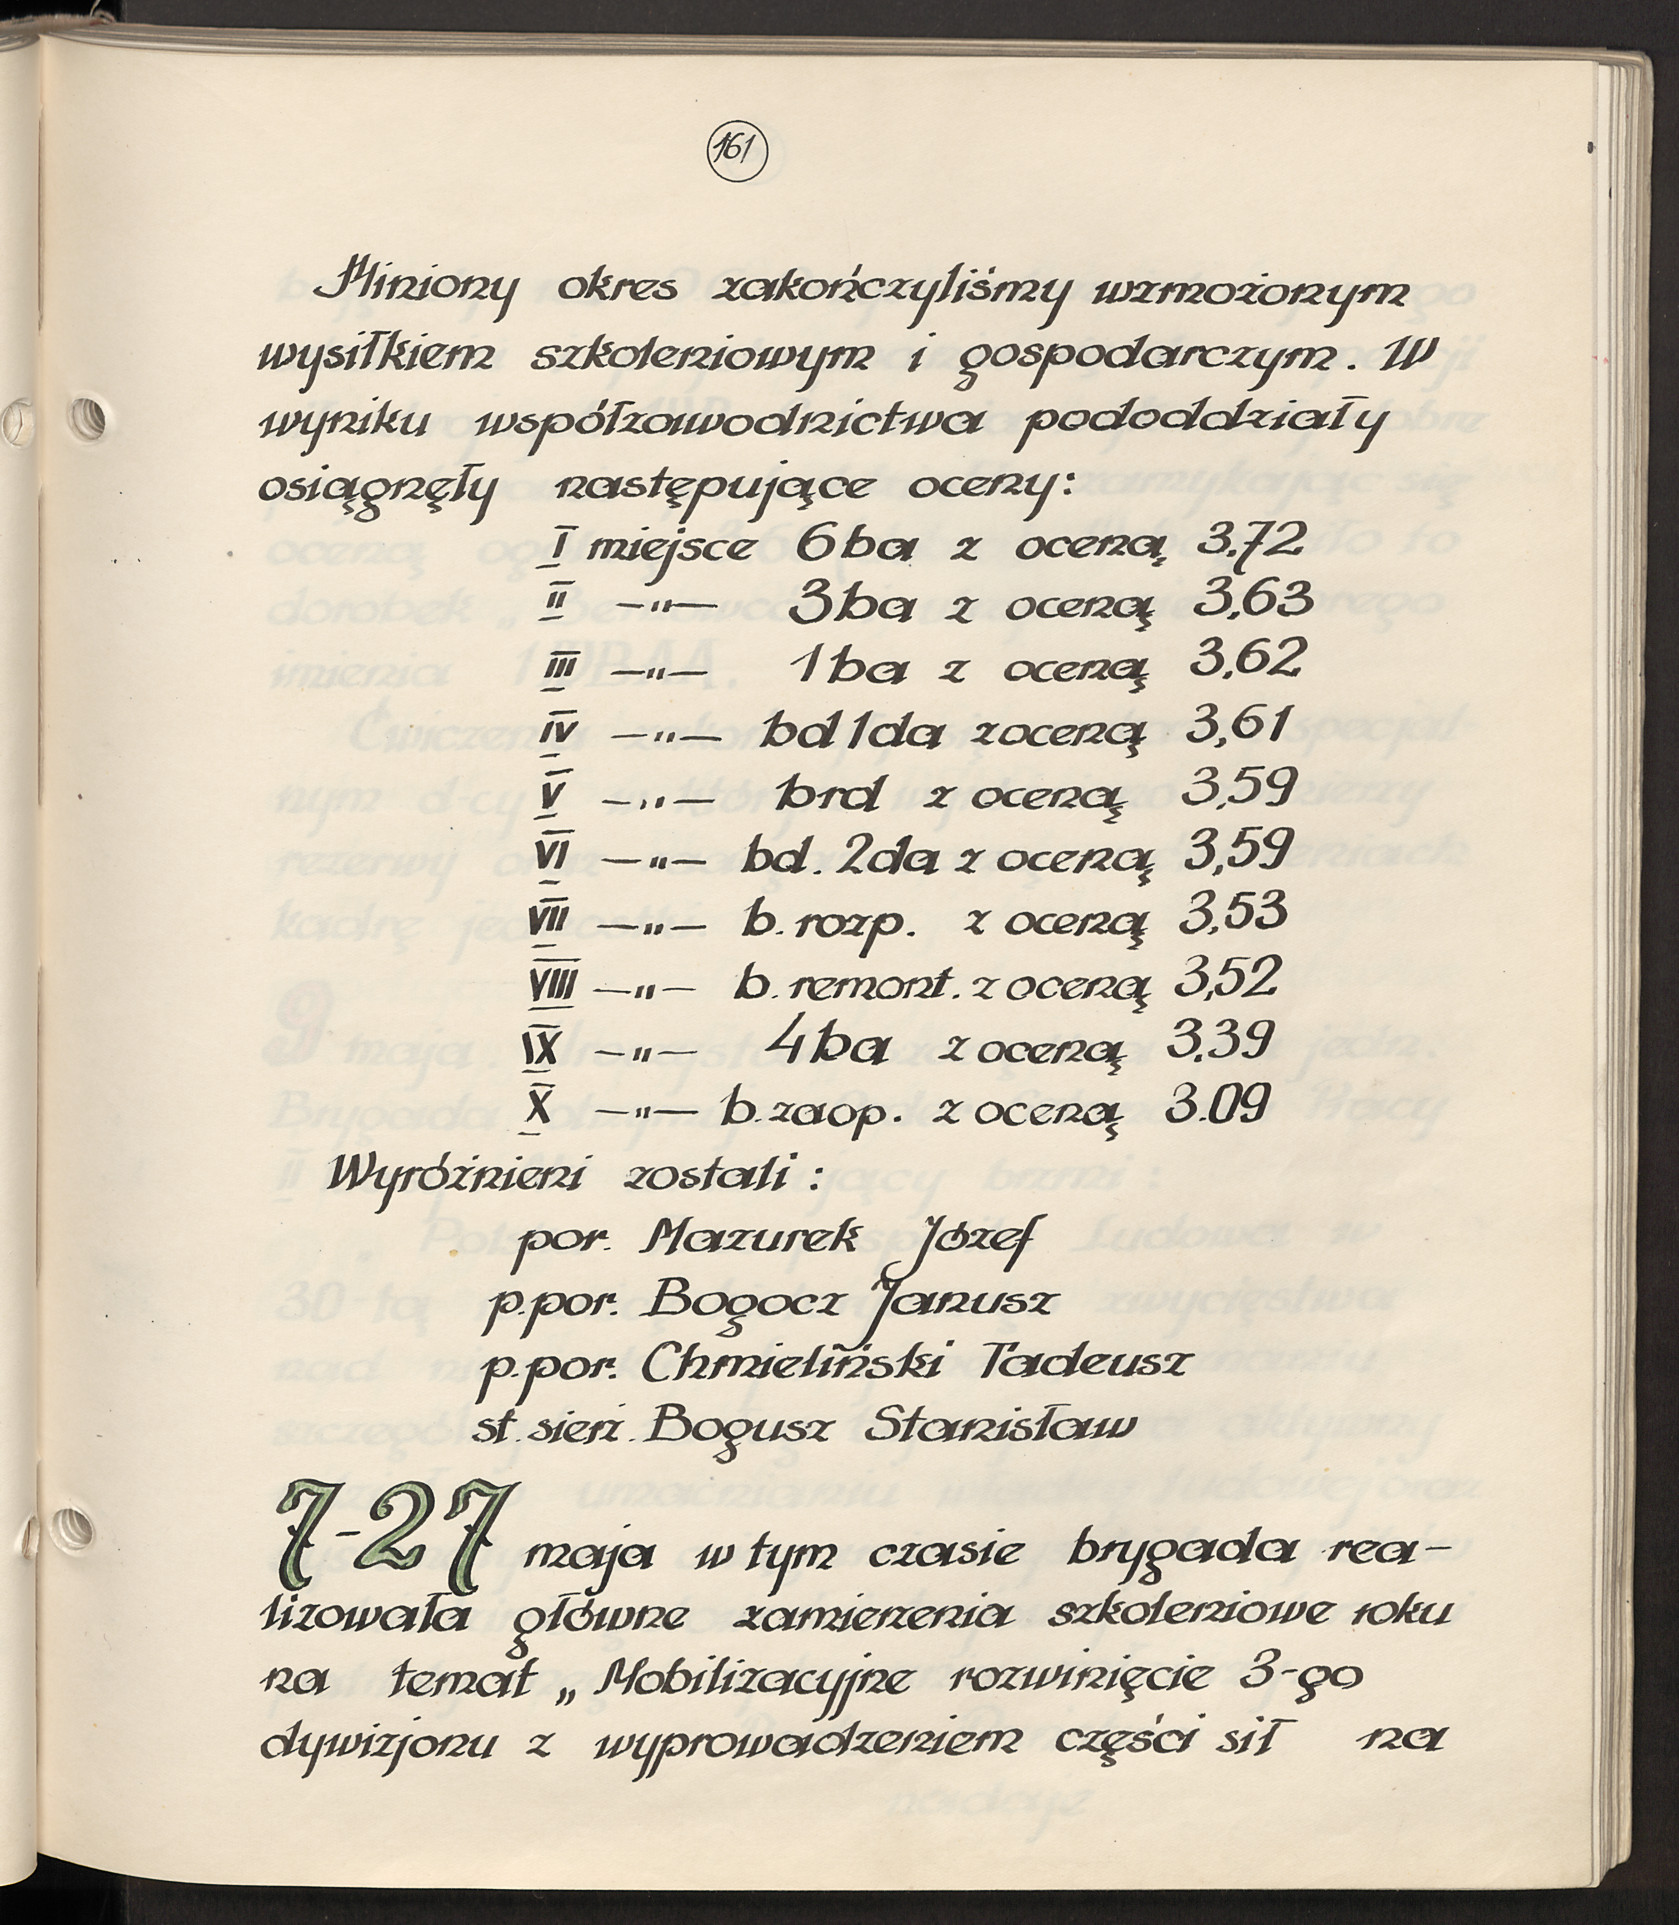 161
Miniony okres zakończyliśmy wzmożonym
wysiłkiem szkoleniowym i gospodarczym. W
wyniku współzawodnictwa pododdziały
osiągnęły następujące oceny:
I miejsce 6 ba z oceną 3.72
II —"— 3 ba z oceną 3,63
III —"— 1 ba z oceną 3,62
IV —"— bd 1da z oceną 3,61
V —"— brd z oceną 3,59
VI —"— bd. 2da z oceną 3,59
VII —"— b. rozp. z oceną 3,53
VIII —"— b. remont. z oceną 3,52
IX —"— 4 ba z oceną 3.39
X —"— b. zaop. z oceną 3.09
Wyróżnieni zostali :
por. Mazurek Józef
p.por. Bogocz Janusz
p.por. Chmieliński Tadeusz
st. sierż. Bogusz Stanisław
7-27 maja w tym czasie brygada rea-
lizowała główne zamierzenia szkoleniowe roku
na temat „Mobilizacyjne rozwinięcie 3-go
dywizjonu z wyprowadzeniem części sił na